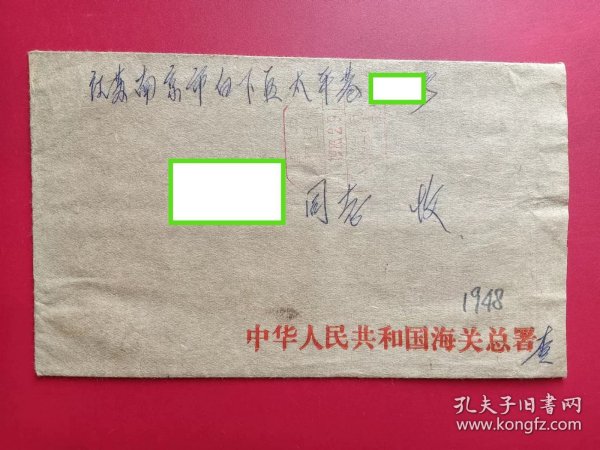 江苏南京市白下区太平巷 号
同志 收
1948
中华人民共和国海关总署 查
孔夫子旧书网
www.kongfz.com